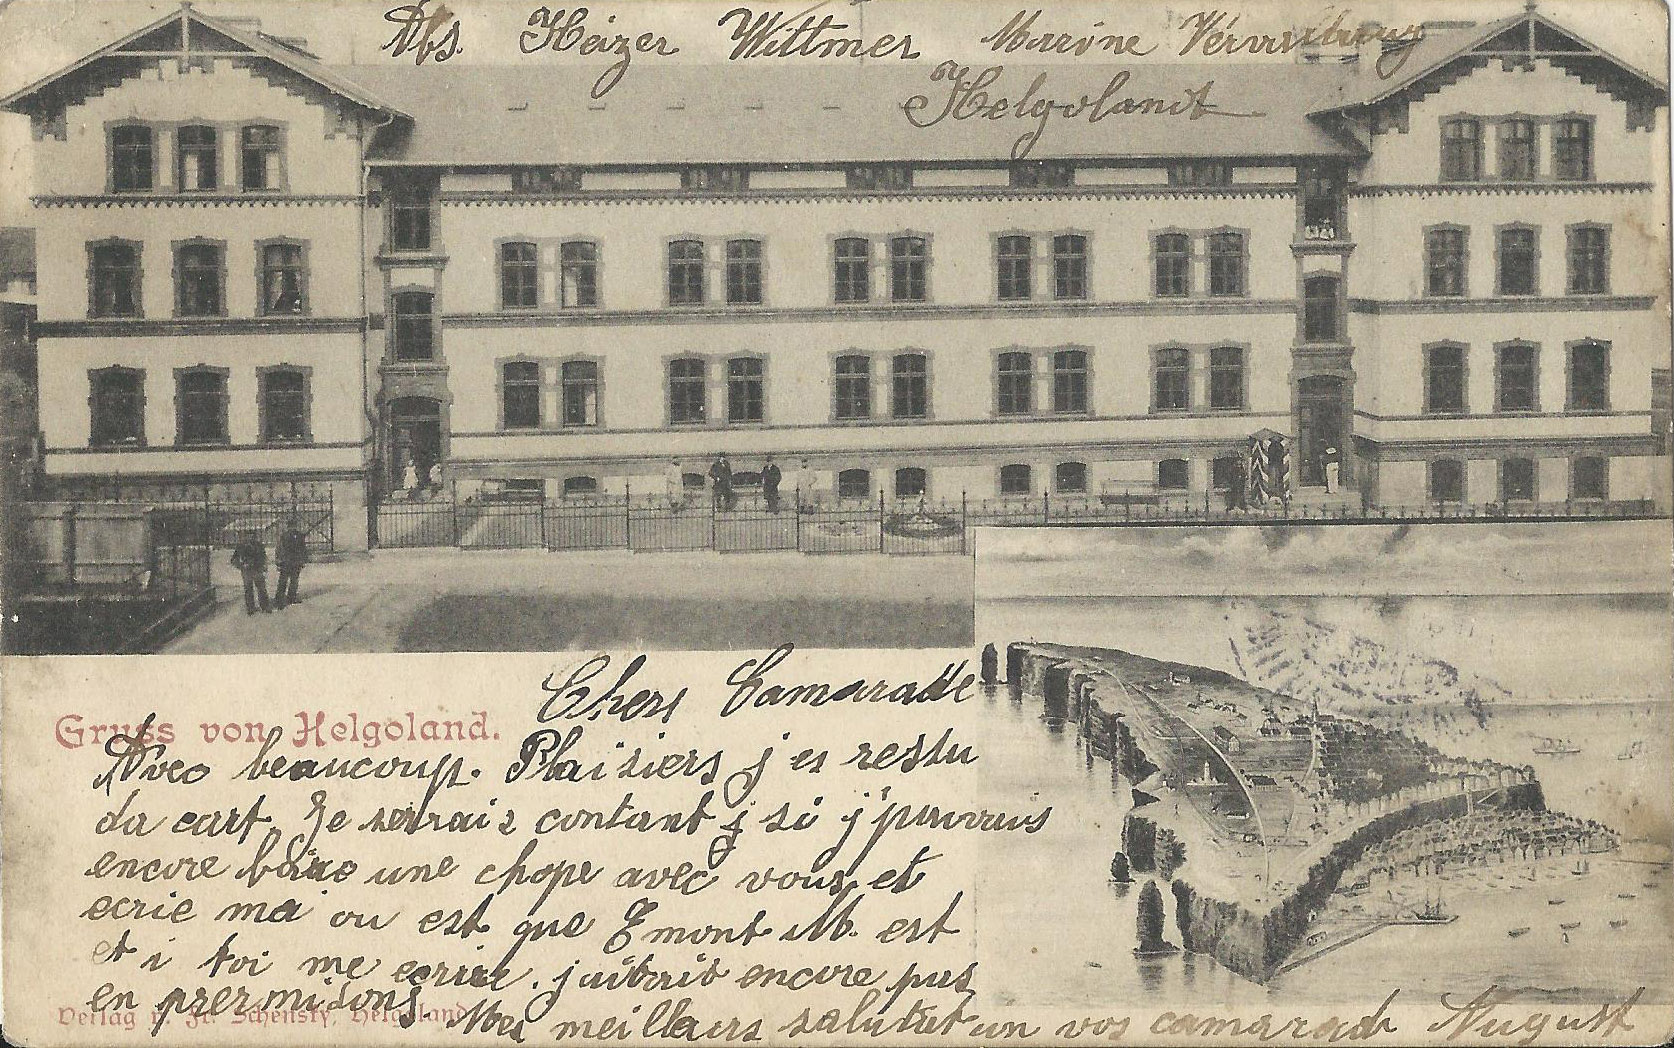 Abs. Heizer Wittmer Marine Verwaltung
Helgoland
Gruss von Helgoland.
Chers Camaratte
Avec beaucoup. Plaisiers j es restu
da cart, Je serrais contant j si j'pouvouis
encore boire une chope avec vous, et
ecrie ma ou est que Emont M. est
et i toi me ecrire. j encore pas
en permisions. Mes meilleurs salutut un vos camarade August
Verlag v. Fr. Schensky, Helgoland